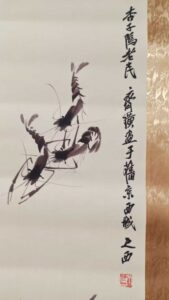 杏子隖老民齊璜画于舊京西城之西